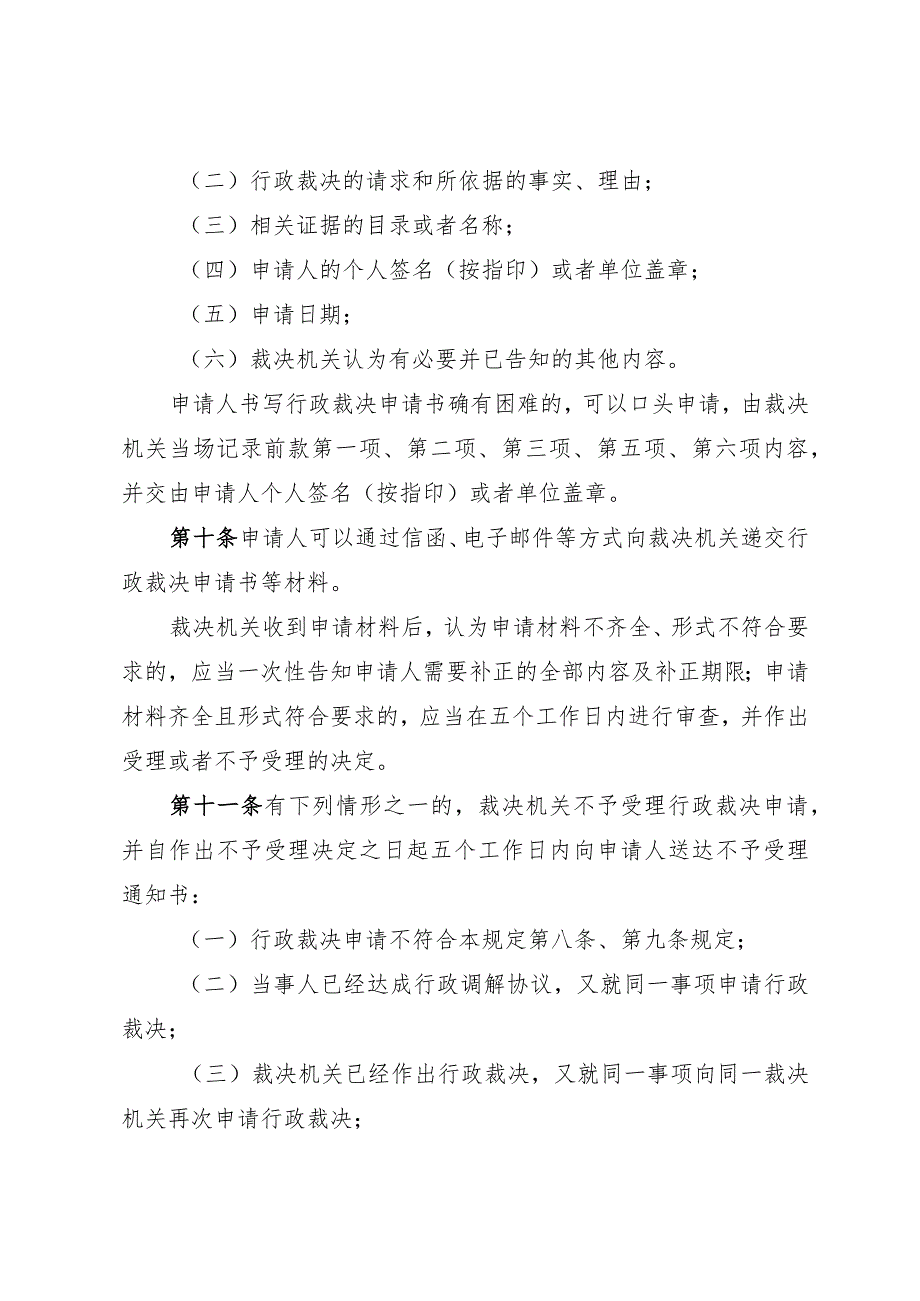 （二）行政裁决的请求和所依据的事实、理由；
（三）相关证据的目录或者名称；
（四）申请人的个人签名（按指印）或者单位盖章；
（五）申请日期；
（六）裁决机关认为有必要并已告知的其他内容。
申请人书写行政裁决申请书确有困难的，可以口头申请，由裁决
机关当场记录前款第一项、第二项、第三项、第五项、第六项内容，
并交由申请人个人签名（按指印）或者单位盖章。
第十条申请人可以通过信函、电子邮件等方式向裁决机关递交行
政裁决申请书等材料。
裁决机关收到申请材料后，认为申请材料不齐全、形式不符合要
求的，应当一次性告知申请人需要补正的全部内容及补正期限；申请
材料齐全且形式符合要求的，应当在五个工作日内进行审查，并作出
受理或者不予受理的决定。
第十一条有下列情形之一的，裁决机关不予受理行政裁决申请，
并自作出不予受理决定之日起五个工作日内向申请人送达不予受理
通知书：
（一）行政裁决申请不符合本规定第八条、第九条规定；
（二）当事人已经达成行政调解协议，又就同一事项申请行政
裁决；
（三）裁决机关已经作出行政裁决，又就同一事项向同一裁决
机关再次申请行政裁决；